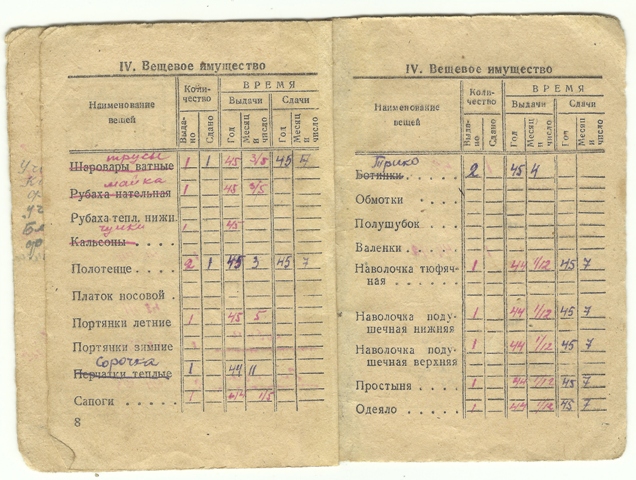 IV. Вещевое имущество
Наименование вещей
Коли-
чество
ВРЕМЯ
Выдачи
Сдачи
Выда-
но
Сдано
Год
Месяц и число
Год
Месяц и число
трусы
Шаровары ватные 1 1 45 3/5 45
майка
Рубаха нательная 1 45 3/5
Рубаха тепл. нижн.
чулки 1 45
Кальсоны . . . .
Полотенце . . . 2 1 45 3 45 7
Платок носовой .
Портянки летние 1 45 5
Портянки зимние
Сорочка
Перчатки теплые 1 44 11
Сапоги . . . . . 1 44 1/5
8
IV. Вещевое имущество
Наименование
вещей
Коли-
чество
ВРЕМЯ
Выдачи
Сдачи
Выда-
но
Сдано
Год
Месяц и число
Год
Месяц и число
Трико
Ботинки . . . . 2 45 4
Обмотки . . . .
Полушубок . . .
Валенки . . . .
Наволочка тюфяч-
ная . . . . . 1 44 1/12 45 7
Наволочка поду- 1 44 1/12 45 7
шечная нижняя
Наволочка поду- 1 44 1/12 45 7
шечная верхняя
Простыня . . . . 1 44 1/12 45 7
Одеяло . . . . . 1 44 1/12 45 7